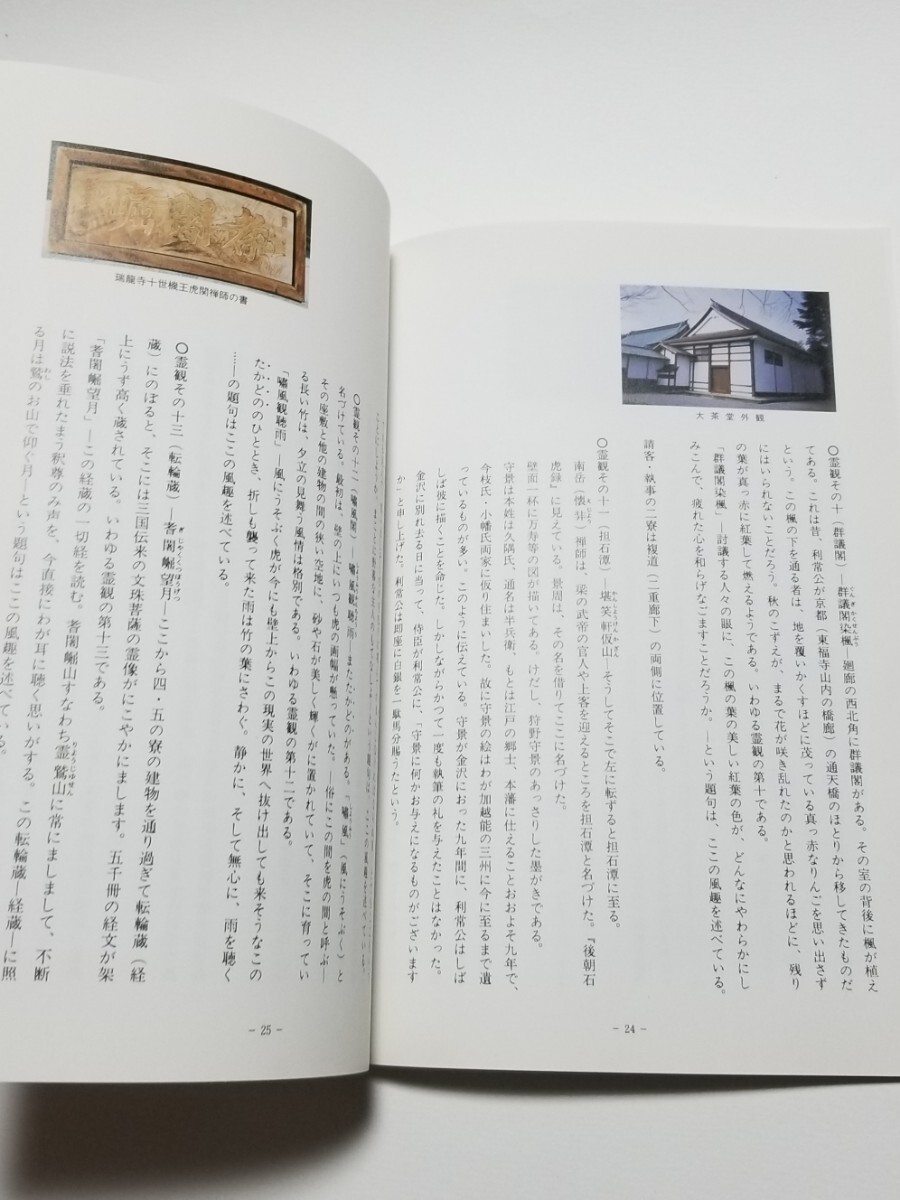 大茶堂外観
〇霊観その十(群議閣)―群議閣染楓―廻廊の西北角に群議閣がある。その室の背後に楓が植え
てある。これは昔、利常公が京都(東福寺山内の橋廊)の通天橋のほとりから移してきたものだ
という。この楓の下を通る者は、地を覆いかくすほどに茂っている真っ赤なりんごを思い出さず
にはいられないことだろう。秋のこずえが、まるで花が咲き乱れたのかと思われるほどに、残り
の葉が真っ赤に紅葉して燃えるようである。いわゆる霊観の第十である。
「群議閣染楓」―討議する人々の眼に、この楓の葉の美しい紅葉の色が、どんなにやわらかにし
みこんで、疲れた心を和らげなごますことだろうか。―という題句は、ここの風趣を述べている。
請客・執事の二寮は複道(二重廊下)の両側に位置している。
〇霊観その十一(担石潭)―堪笑軒仮山―そうしてそこで左に転ずると担石潭に至る。
南岳(懐弉)禅師は、梁の武帝の官人や上客を迎えるところを担石潭と名づけた。『後朝石
虎録』に見えている。景周は、その名を借りてここに名づけた。
壁面一杯に万寿等の図が描いてある。けだし、狩野守景のあっさりした墨がきである。
守景は本姓は久隅氏、通名は半兵衛、もとは江戸の郷士、本藩に仕えることおおよそ九年で、
今枝氏・小幡氏両家に仮り住まいした。故に守景の絵はわが加越能の三州に今に至るまで遺
っているものが多い。このように伝えている。守景が金沢におった九年間に、利常公はしば
しば彼に描くことを命じた。しかしながらかつて一度も執筆の礼を与えたことはなかった。
金沢に別れ去る日に当って、侍臣が利常公に、「守景に何かお与えになるものがございます
か」と申し上げた。利常公は即座に白銀を一駄馬分賜うたという。
－24－
瑞龍寺十世機王虎関禅師の書
〇霊観その十二(嘯風閣)―嘯風観聴雨―またたかどのがある。「嘯風」(風にうそぶく)と
名づけている。最初は、壁の上にいつも虎の画幅が懸っていた。―俗にこの間を虎の間と呼ぶ―
その座敷と他の建物の間の狭い空地に、砂や石が美しく輝くがに置かれていて、そこに育ってい
る長い竹は、夕立の見舞う風情は格別である。いわゆる霊観の第十二である。
「嘯風観聴雨」―風にうそぶく虎が今にも壁上からこの現実の世界へ抜け出しても来そうなこの
たかどののひととき、折しも襲って来た雨は竹の葉にさわぐ。静かに、そして無心に、雨を聴く
……―の題句はここの風趣を述べている。
〇霊観その十三(転輪蔵)―耆闍崛望月―ここから四・五の寮の建物を通り過ぎて転輪蔵(経
蔵)にのぼると、そこには三国伝来の文珠菩薩の霊像がにこやかにまします。五千冊の経文が架
上にうず高く蔵されている。いわゆる霊観の第十三である。
「耆闍崛望月」―この経蔵の一切経を読む。耆闍崛山すなわち霊鷲山に常にましまして、不断
に説法を垂れたまう釈尊のみ声を、今直接にわが耳に聴く思いがする。この転輪蔵―経蔵―に照
る月は鷲のお山で仰ぐ月―という題句はここの風趣を述べている。
－25－